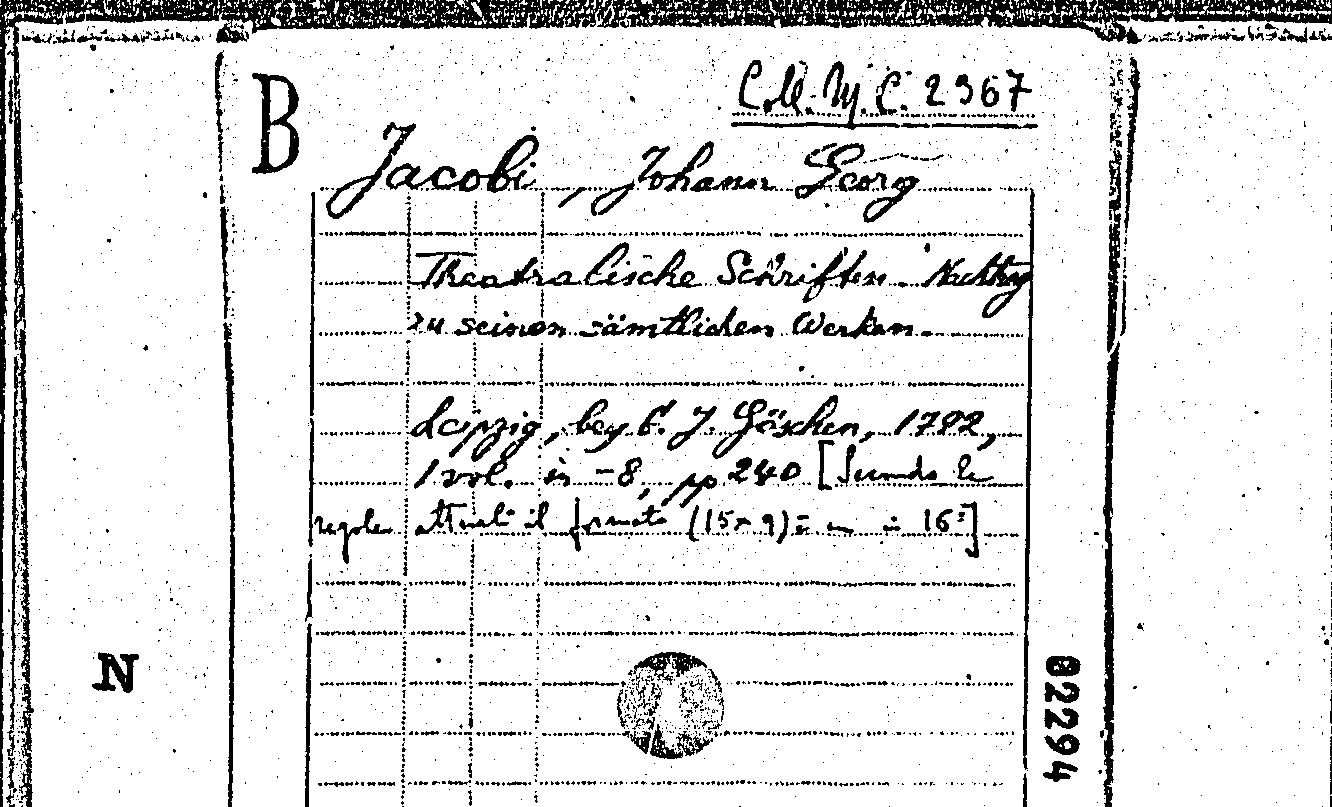 B
Coll. M. C. 2967
Jacobi, Johann Georg
Theatralische Schriften. Nachtrag
zu seinen sämtlichen Werken.
Leipzig, bey G. J. Göschen, 1792,
1 vol. in -8, pp 240 [Secondo le
regole attuali il formato (15x9) è un in 16°]
N
02294